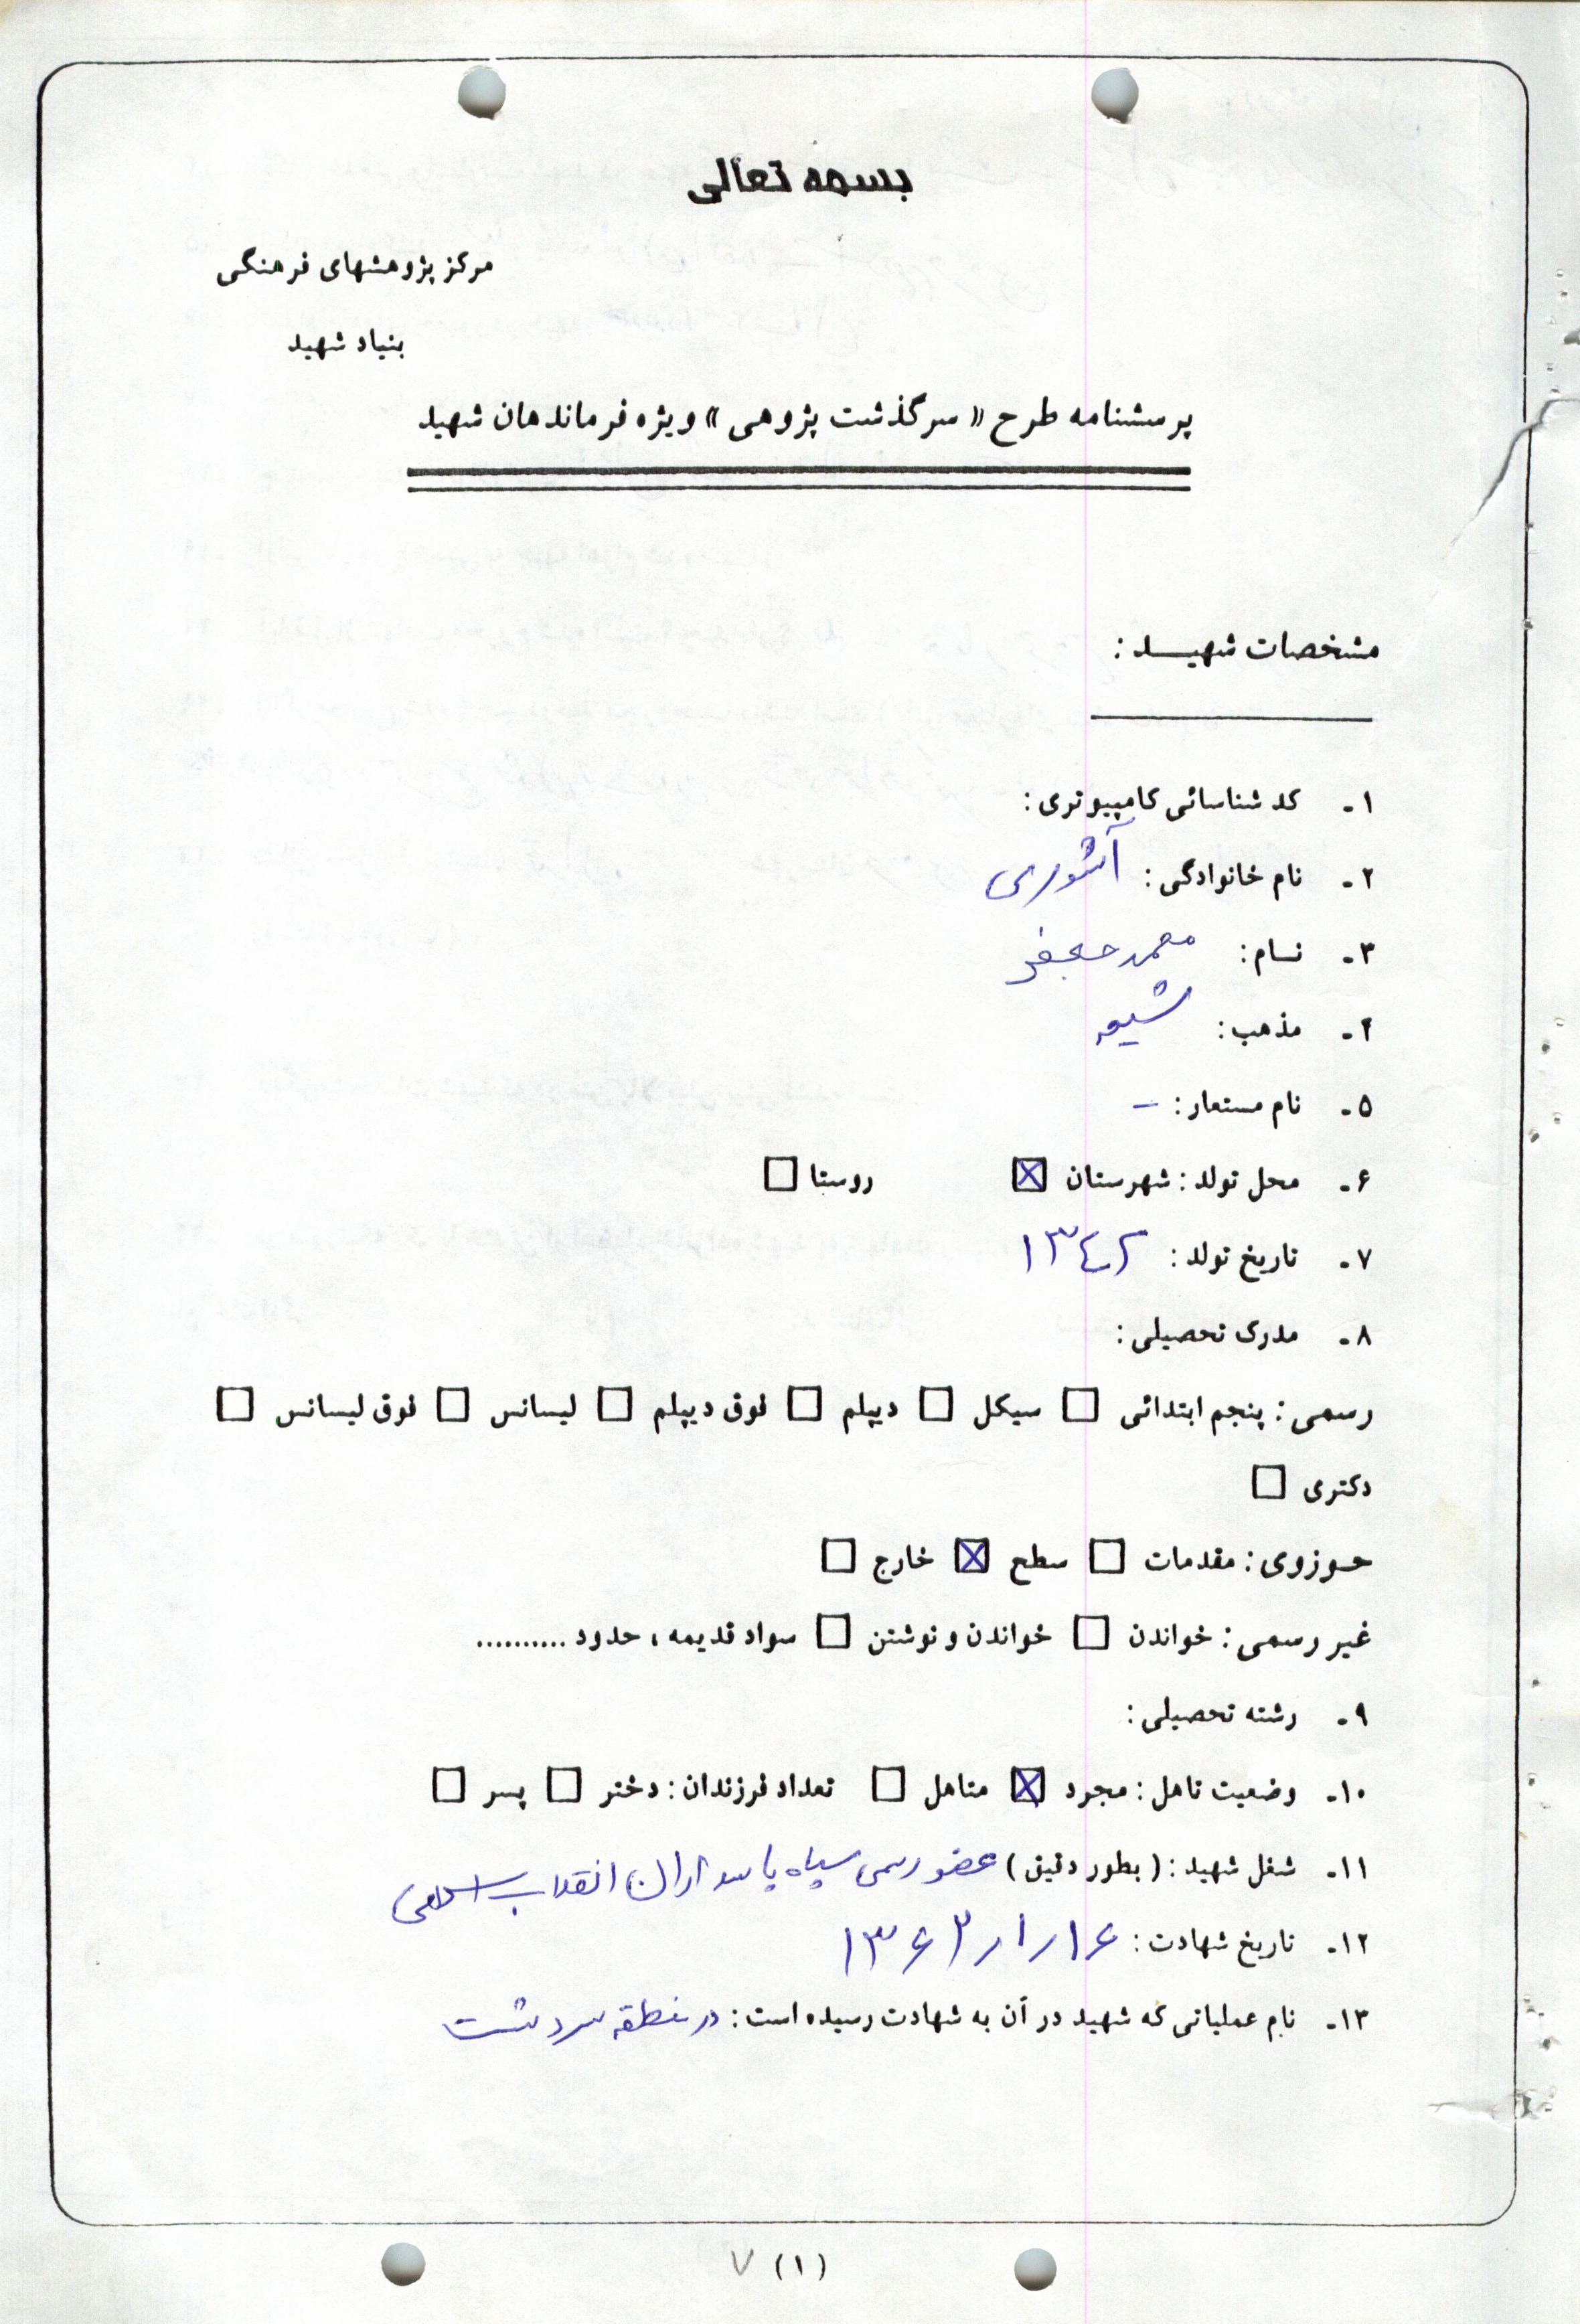 بسمه تعالی
مرکز پژوهشهای فرهنگی
بنیاد شهید
پرسشنامه طرح «سرگذشت پژوهی» ویژه فرماندهان شهید
مشخصات شهیـــد :
۱- کد شناسائی کامپیوتری :
۲- نام خانوادگی : آشوری
۳- نـام : محمدجعفر
۴- مذهب : شیعه
۵- نام مستعار : –
۶- محل تولد : شهرستان ☒ روستا ☐
۷- تاریخ تولد : ۱۳۴۲
۸- مدرک تحصیلی :
رسمی : پنجم ابتدائی ☐ سیکل ☐ دیپلم ☐ فوق دیپلم ☐ لیسانس ☐ فوق لیسانس ☐
دکتری ☐
حـوزوی : مقدمات ☐ سطح ☒ خارج ☐
غیر رسمی : خواندن ☐ خواندن و نوشتن ☐ سواد قدیمه ، حدود ..........
۹- رشته تحصیلی :
۱۰- وضعیت تاهل : مجرد ☒ متاهل ☐ تعداد فرزندان : دختر ☐ پسر ☐
۱۱- شغل شهید : ( بطور دقیق ) عضو رسمی سپاه پاسداران انقلاب اسلامی
۱۲- تاریخ شهادت : ۱۶/۱/۱۳۶۳
۱۳- نام عملیاتی که شهید در آن به شهادت رسیده است : در منطقه سردشت
(۱) ۷